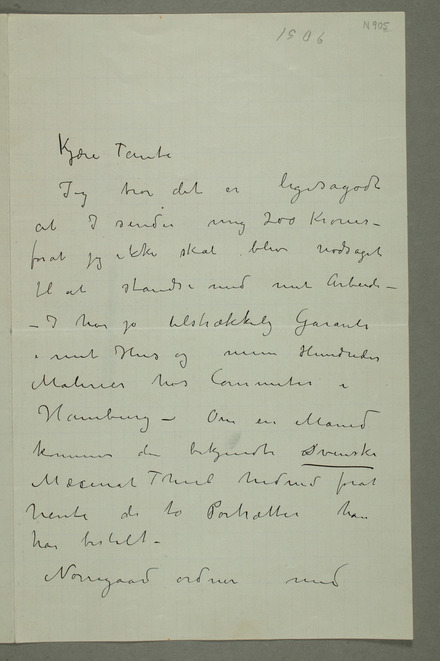 N 905
1906
Kjære Tante
Jeg tror det er ligesagodt
at I sender mig 200 Kroner –
forat jeg ikke skal blive nødsaget
til at standse med mit Arbeide –
– I har jo tilstrækkelig Garanti
i mit Hus og mine Hundreder
Malerier hos Commeter i
Hamburg – Om en Maaned
kommer den bekjendte svenske
Mæcenat Thiel hid forat
hente de to Portrætter han
har bestilt –
Nørregaard ordner med